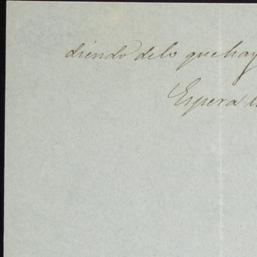 diendo de lo que hay
Espera